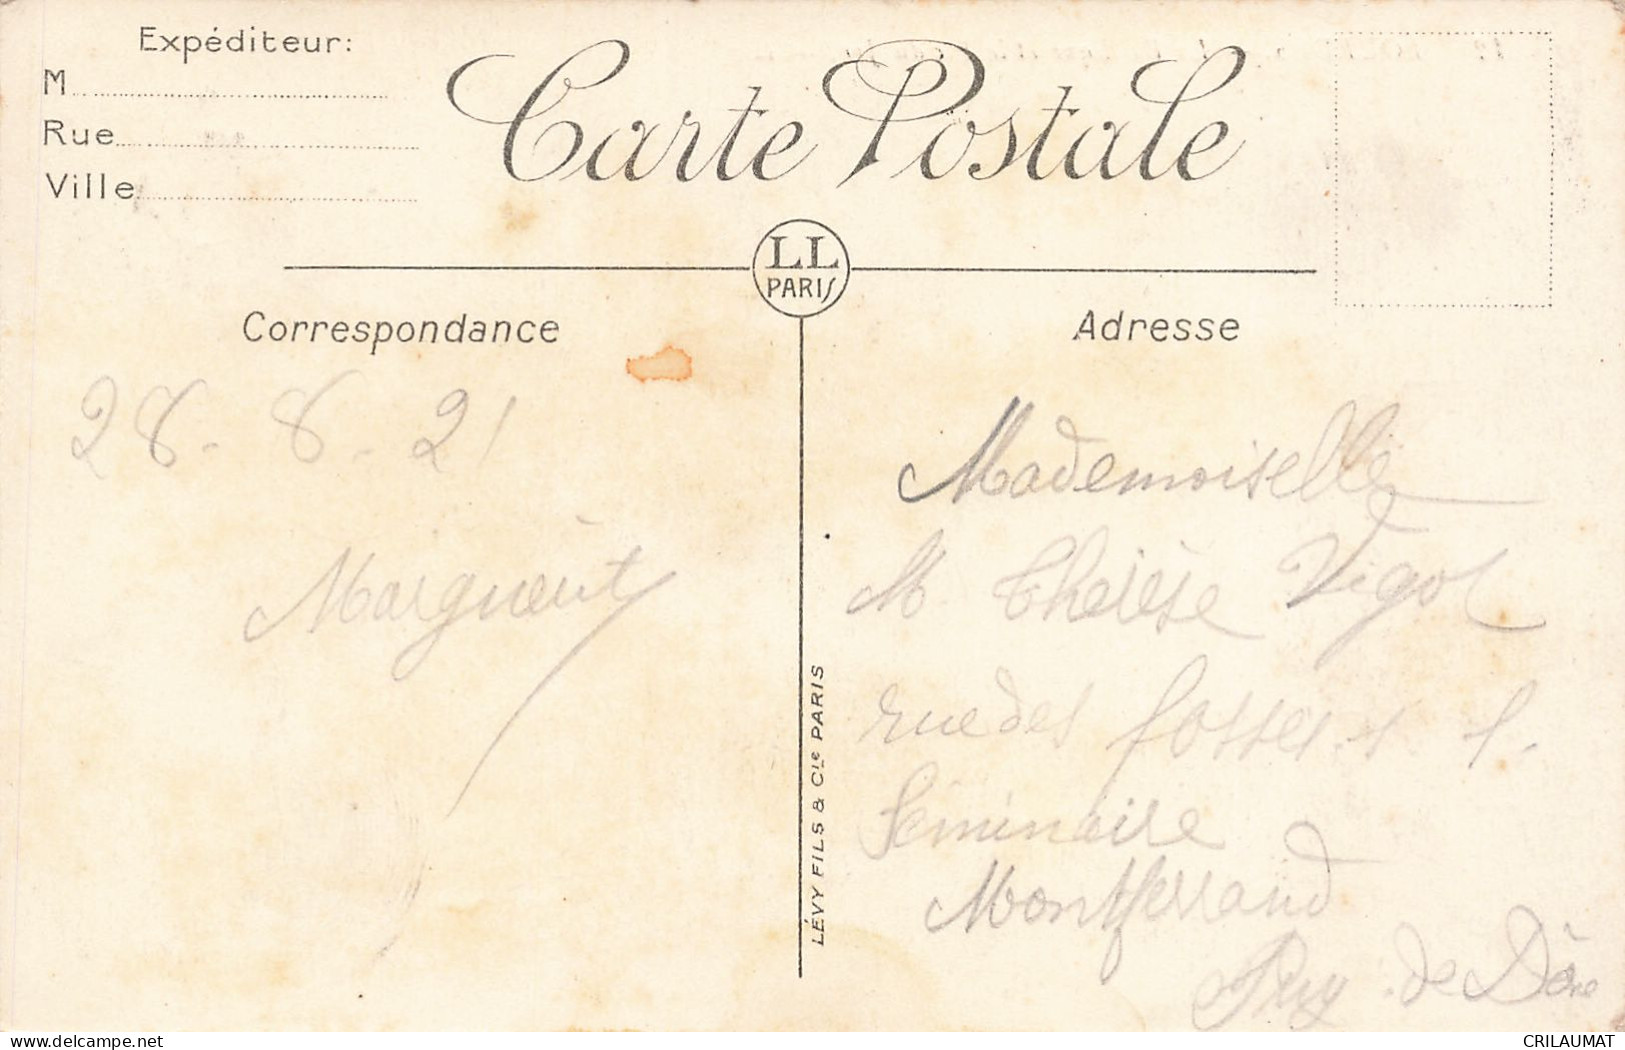 Expéditeur:
M
Rue
Ville
Carte Postale
LL
PARIS
Correspondance
Adresse
28-8-21
Marguerite
Mademoiselle
M Thérèse Vigol
rue des fosses s. l.
Séminaire
Montferrand
Puy-de-Dôme
LÉVY FILS & Cie PARIS
delcampe.net
CRILAUMAT